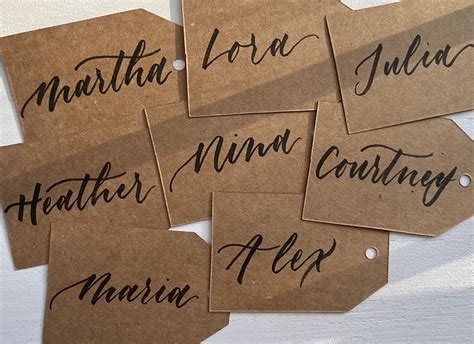 Martha
Lora
Julia
Heather
Nina
Courtney
Maria
Alex